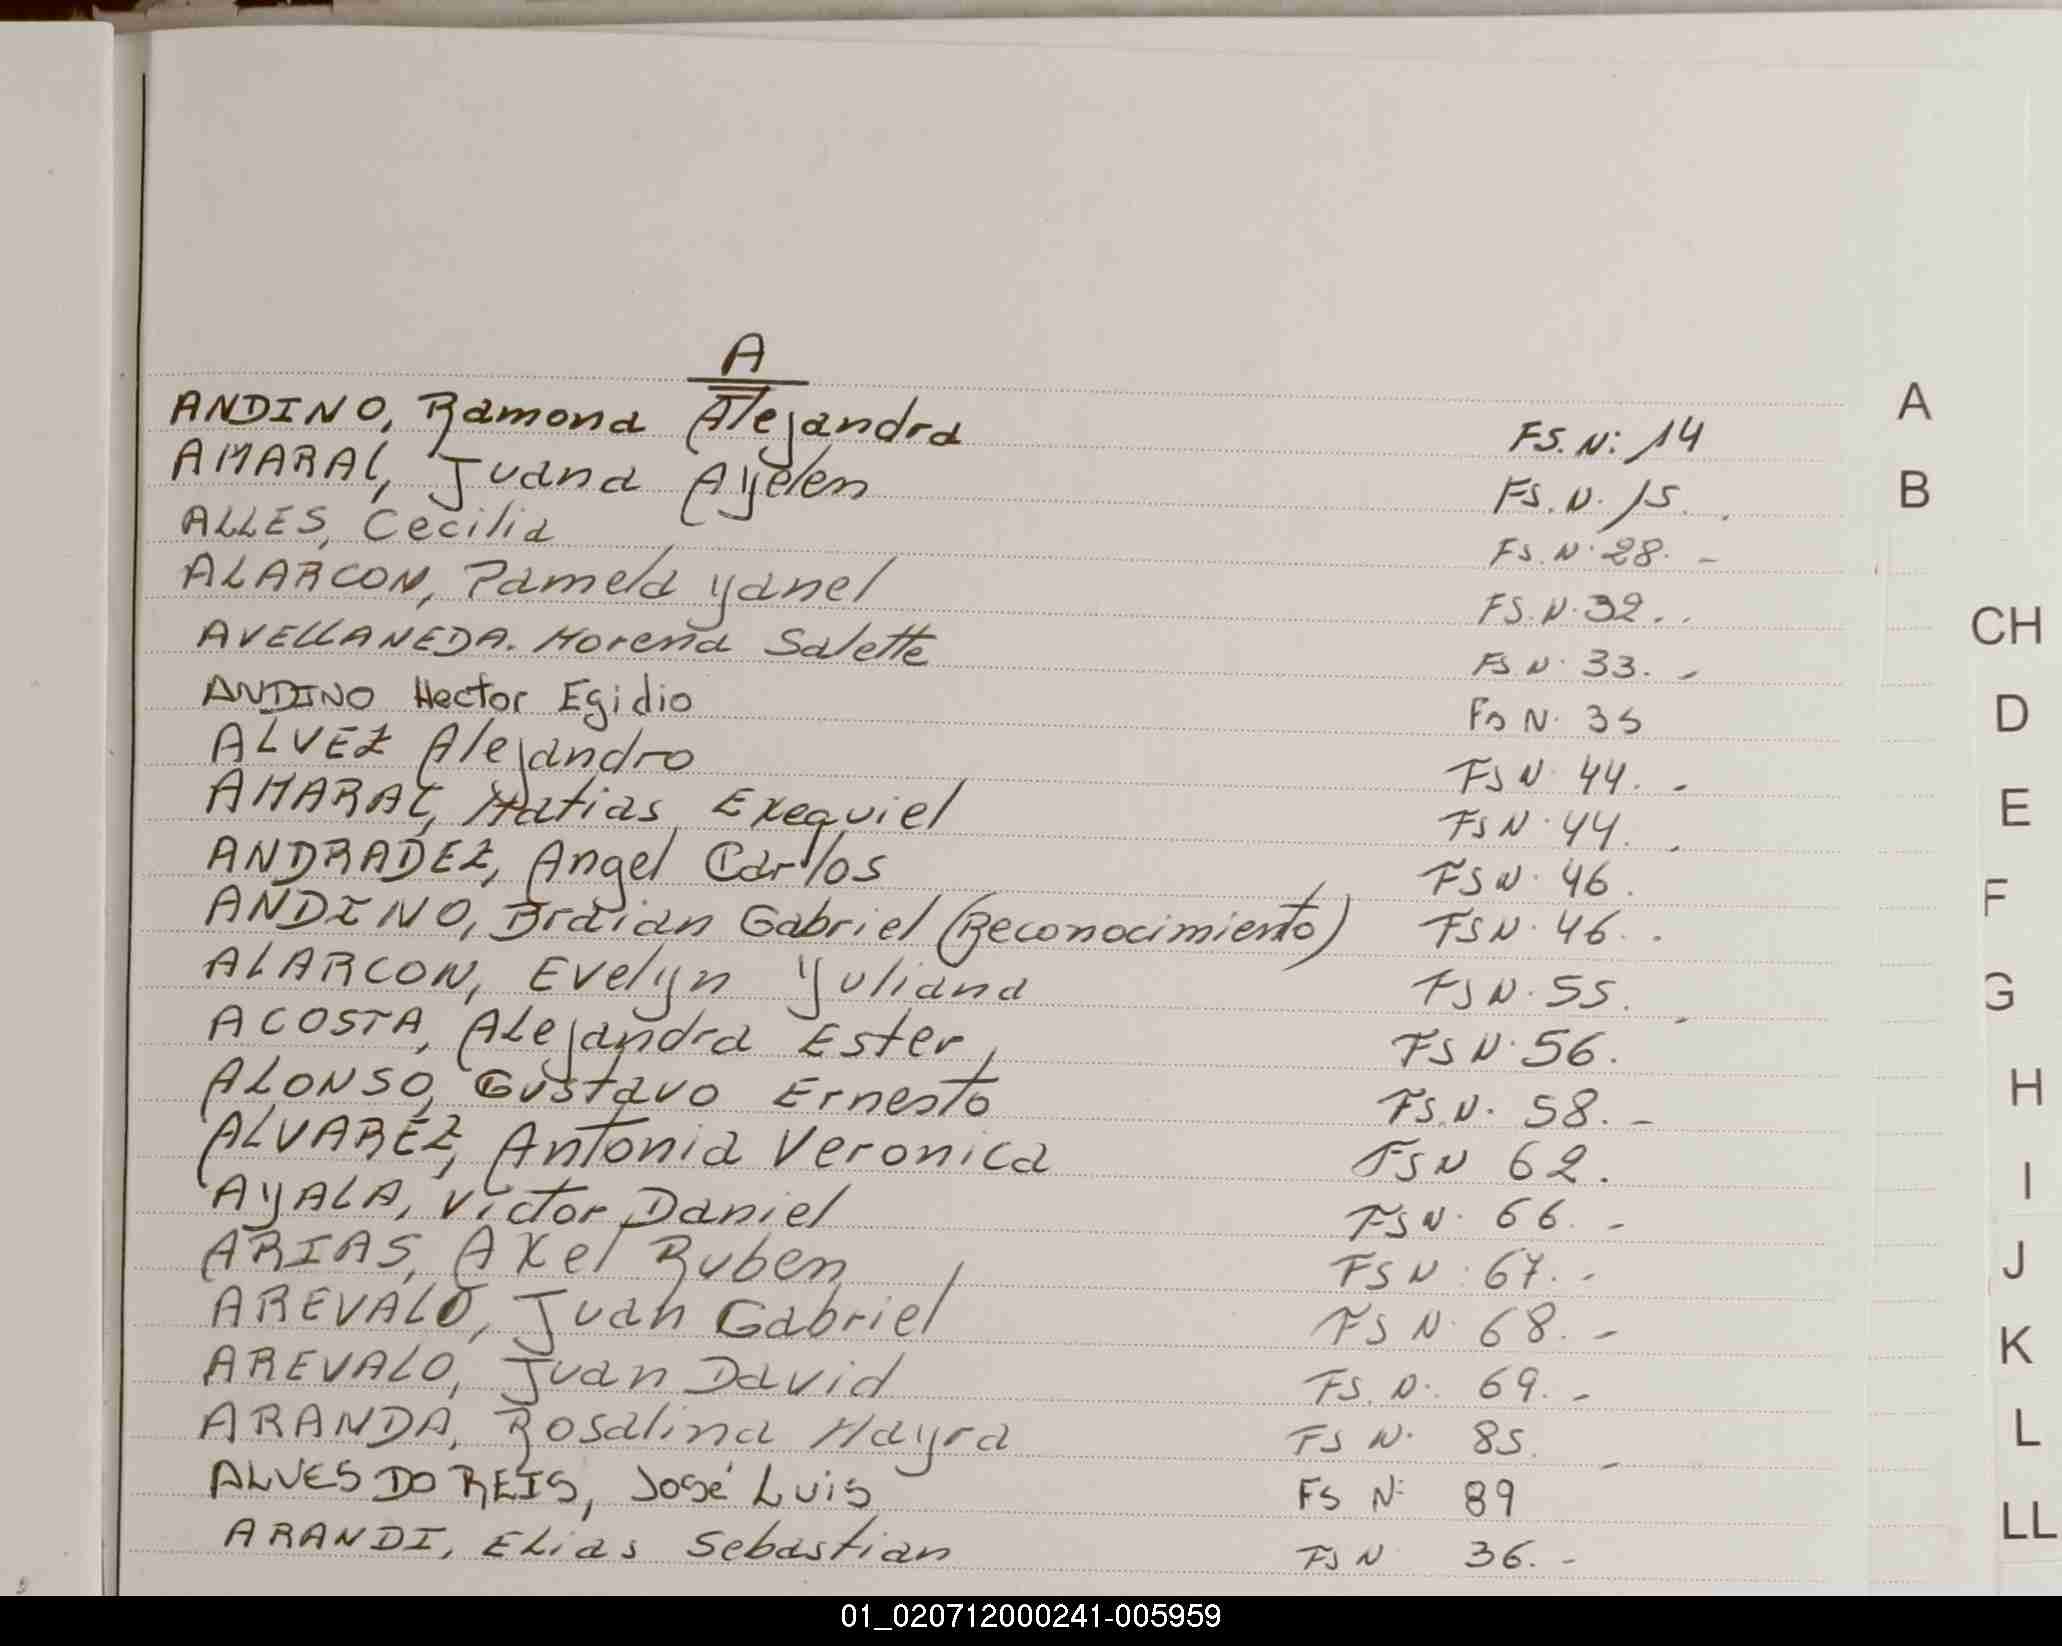 A
ANDINO, Ramona Alejandra FS. N: 14
AMARAL, Juana Ayelen FS. N. 15.
ALLES, Cecilia FS. N. 28. -
ALARCON, Pamela yanel FS. N. 32..
AVELLANEDA. Morena Salette FS N. 33. -
ANDINO Hector Egidio Fs N. 35
ALVEZ Alejandro FS N. 44. -
AMARAL, Matias Exequiel FS N. 44.
ANDRADEZ, Angel Carlos FS N. 46.
ANDINO, Braian Gabriel (Reconocimiento) FS N. 46..
ALARCON, Evelyn Yuliana FS N. 55.
ACOSTA, ALejandra Ester FS N. 56.
ALONSO, Gustavo Ernesto FS. N. 58. -
ALVAREZ, Antonia Veronica FS N 62.
AyALA, Victor Daniel FS N. 66. -
ARIAS, AXel Ruben FS N. 67. -
AREVALO, Juan Gabriel FS N. 68. -
AREVALO, Juan David FS. N. 69. -
ARANDA, Rosalina Mayra FS N. 85. -
ALVES DO REIS, José Luis FS N: 89
ARANDI, ELias Sebastian FS N 36. -
A
B
CH
D
E
F
G
H
I
J
K
L
LL
01_020712000241-005959